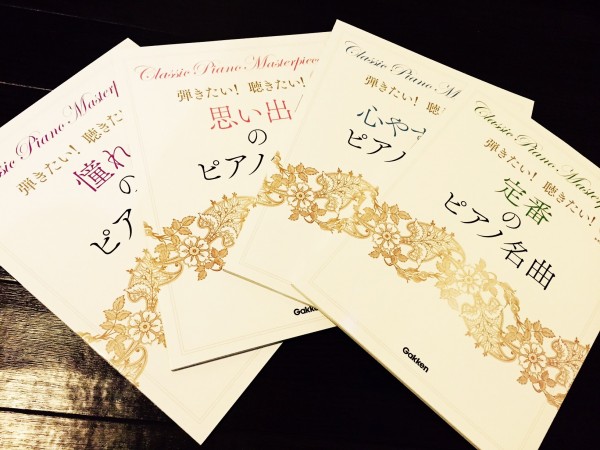 Classic Piano Master
弾きたい! 聴きた
憧れ
の
ピア
Classic Piano Masterpiec
弾きたい! 聴きたい!
思い出
の
ピアノ
Classic Piano M
弾きたい! 聴
心や
ピアノ
Gakken
Classic Piano Masterp
弾きたい! 聴きたい!
定番
の
ピアノ名曲
Gakken